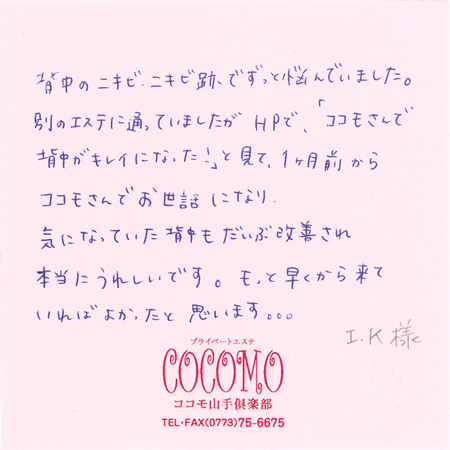 背中のニキビ・ニキビ跡、でずっと悩んでいました。
別のエステに通っていましたが HPで、「ココモさんで
背中がキレイになった!」と見て、1ヶ月前から
ココモさんでお世話になり、
気になっていた背中もだいぶ改善され
本当にうれしいです。もっと早くから来て
いればよかったと思います。。。
I.K様
プライベートエステ
COCOMO
ココモ山手倶楽部
TEL・FAX(0773)75-6675